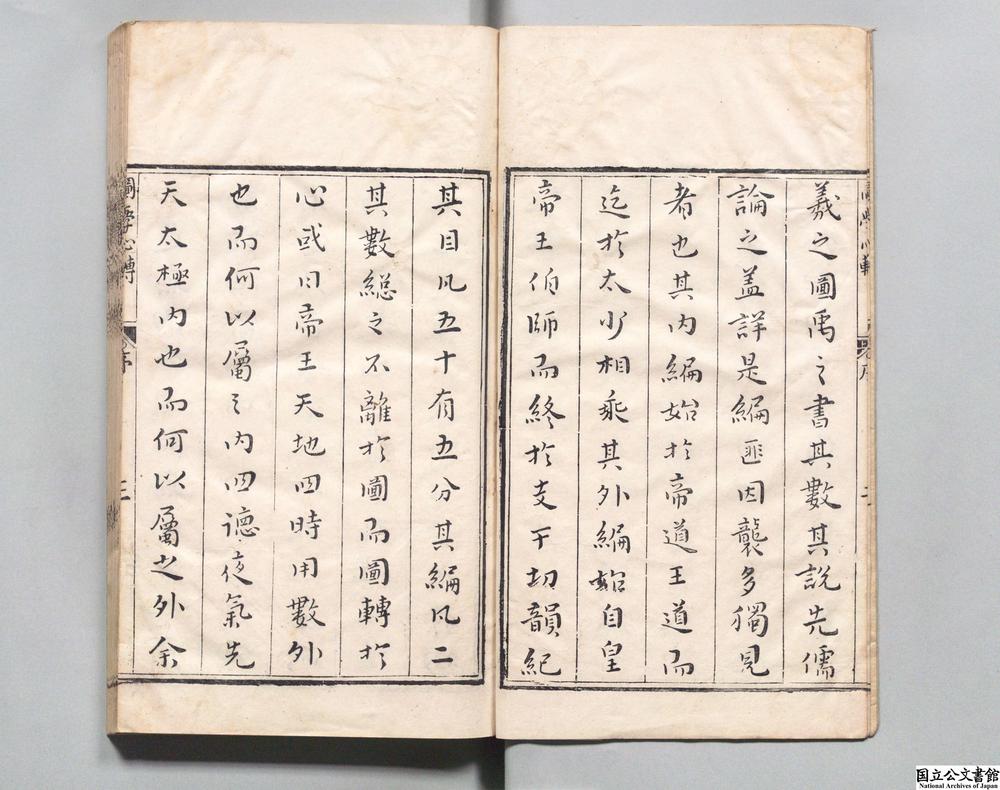 羲之圖禹之書其數其說先儒
論之蓋詳是編匪因襲多獨見
者也其内編始於帝道王道而
迄於太少相乘其外編始自皇
帝王伯師而終於支干切韻紀
其目凡五十有五分其編凡二
其數總之不離於圖而圖轉於
心或曰帝王天地四時用數外
也而何以屬之内四德夜氣先
天太極内也而何以屬之外余
圖學心轉
序
三
国立公文書館
National Archives of Japan